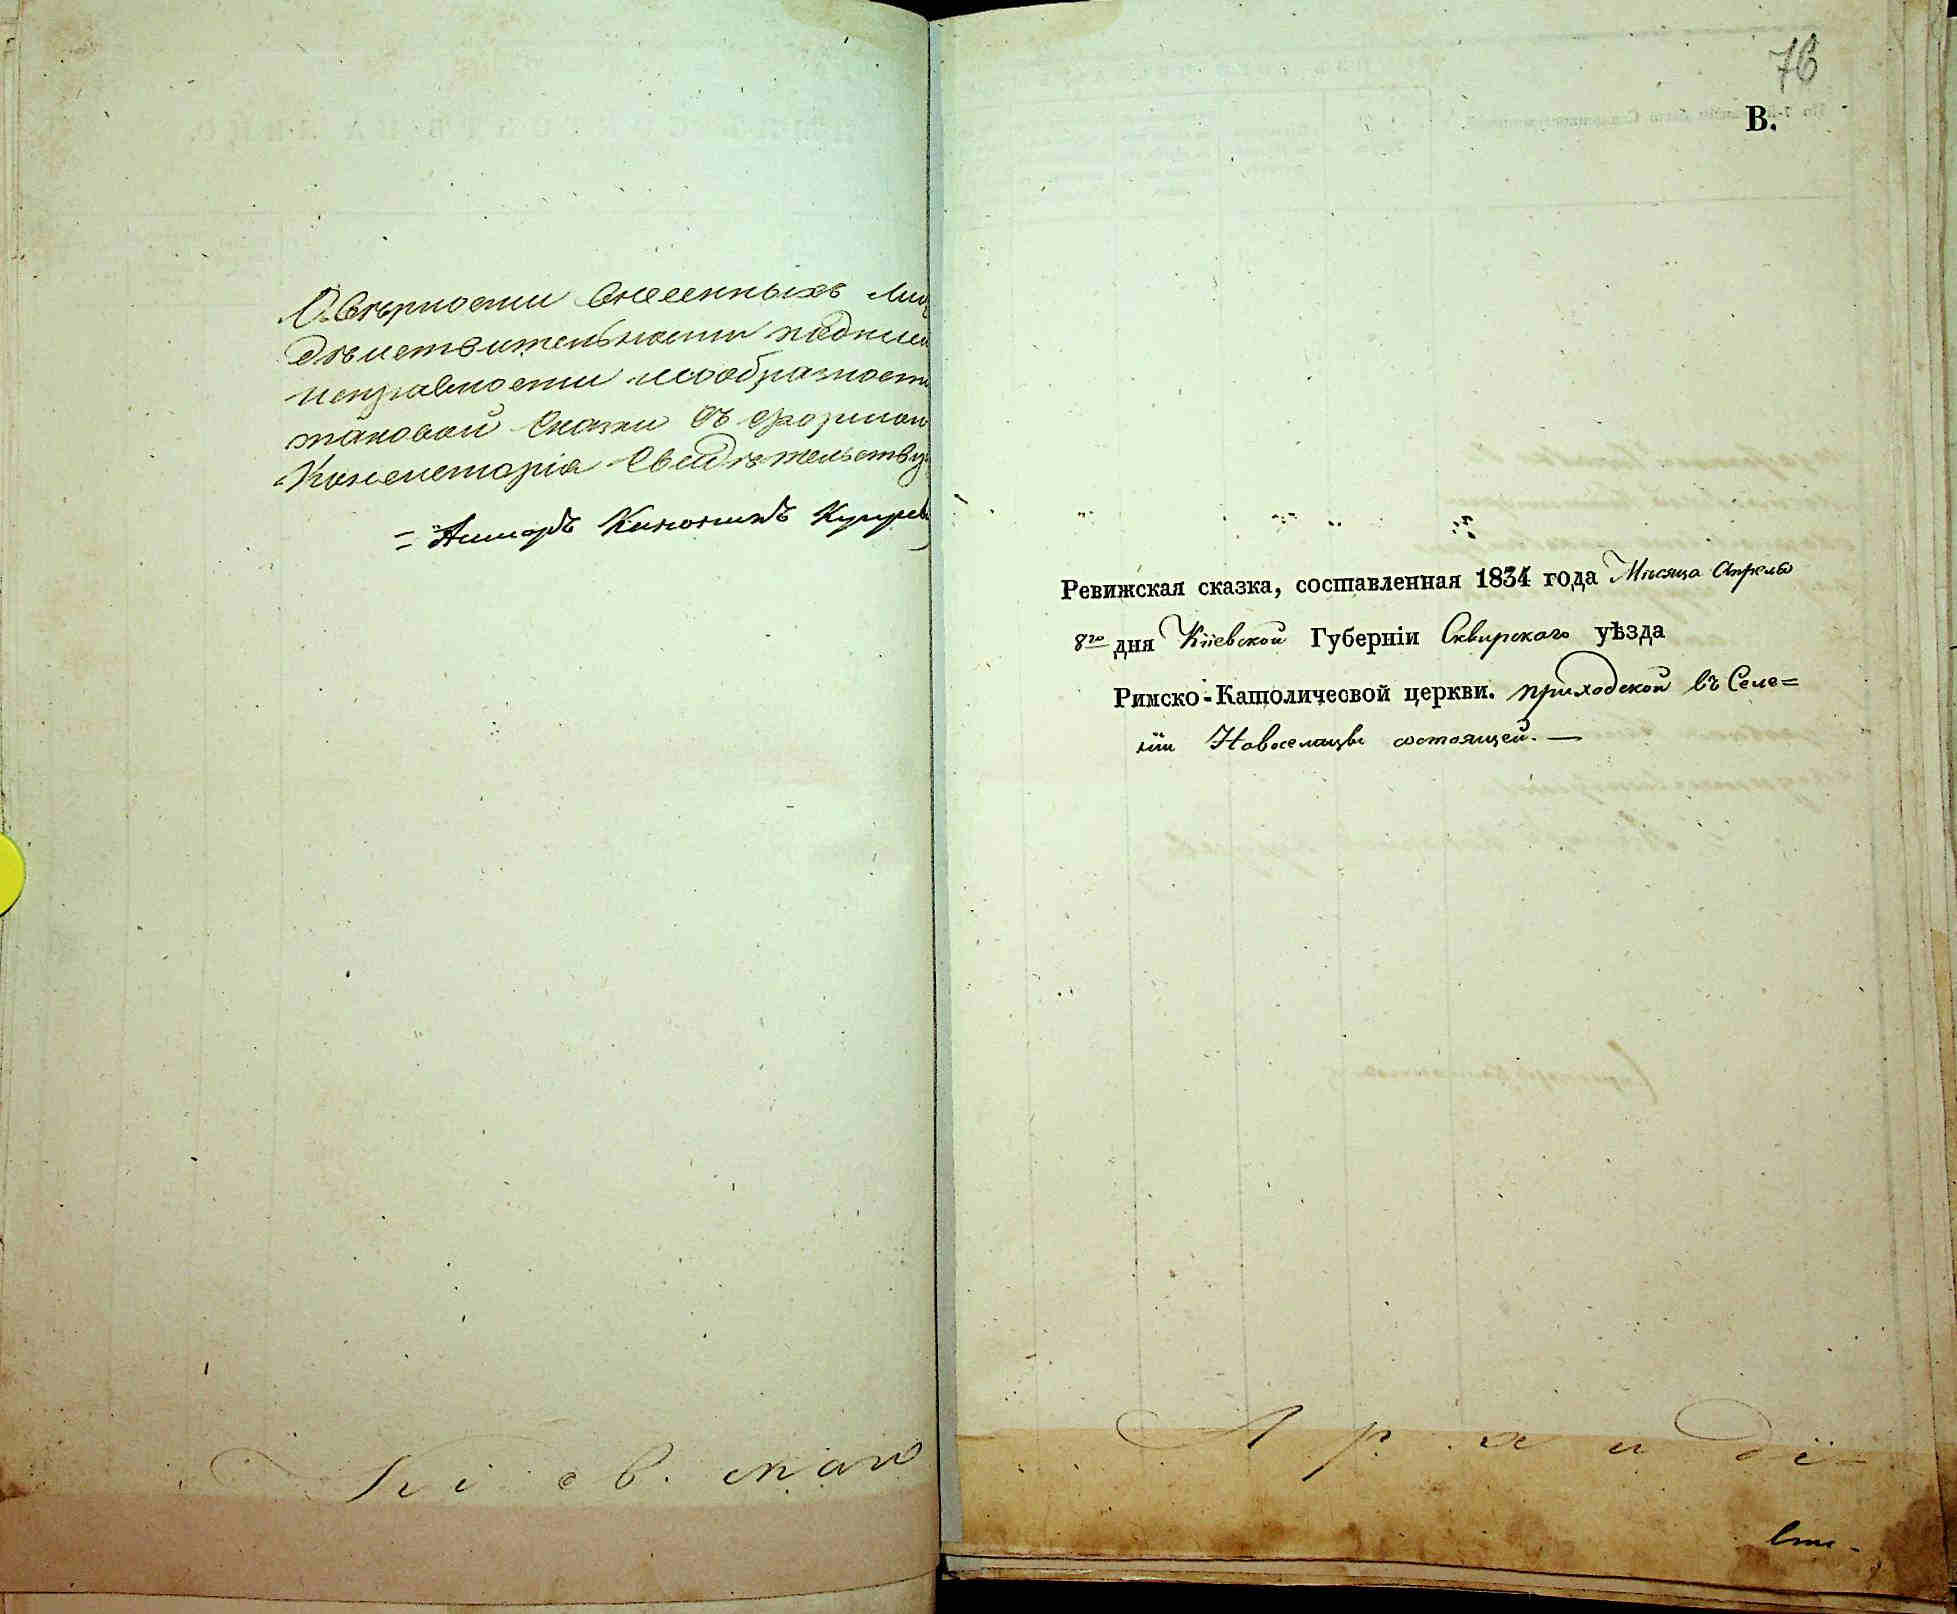 О вѣрности внесенныхъ лиц
дѣйствительности подписи
исправности и сообразности
таковой Сказки съ формою
Консисторія свидѣтельству
= Каноникъ
Кіевскаго
76
В.
Ревижская сказка, составленная 1834 года Мѣсяца Апрѣля
8го дня Кіевской Губерніи Сквирскаго уѣзда
Римско-Католической церкви. приходской въ Селе=
ніи Новоселицѣ состоящей. —
Архиді-